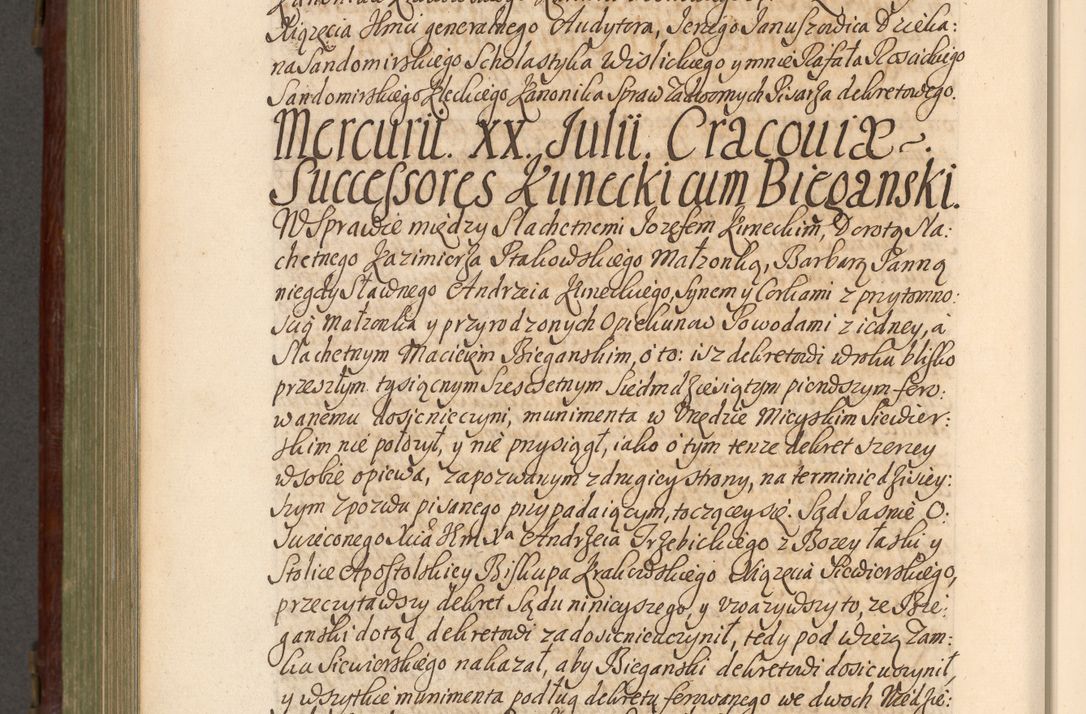 Xiązęcia Jmci generalnego Audytora, Jerzego Januszowica Dzieka:
na Sandomirskiego Scholastyka Wislickiego y mnie Rafała Rosickiego
Sandomirskiego Kieckiego Kanonika Spraw Zadwornych Pisarza dekretowego.
Mercurii. XX. Julii. Cracouiæ.
Successores Kunecki cum Bieganski.
W Sprawie między Slachetnemi Jozefem Kuneckim, Dorotą Sla:
chetnego Kazimierza Ptakowskiego Małzonką, Barbarą Panną
niegdy Sławnego Andrzeia Kuneckiego, Synem y Corkami z przytomno:
scią Małzonka y przyrodzonych Opiekunow Powodami z iedney, a
Slachetnym Macieiem Bieganskim, o to: isz dekretowi w roku blisko
przeszłym tysiącnym Szescsetnym Siedmdziesiątym pierwszym fero:
wanemu dosicnieczyni, munimenta w Urzędzie Mieyskim Siewier:
skim nie połozył, y nie przysiągł, iako o tym tenze dekret szerzey
w sobie opiewa, zapozwanym z drugiey strony, na terminie dzisiey:
szym z pozwu pisanego przypadaiącym, toczącey się. Sąd Jasnie O:
swieconego Xcia Jm Xa Andrzeia Trzebickiego z Bozey łaski y
Stolice Apostolskiey Biskupa Krakowskiego Xiązęcia Siewierskiego,
przeczytawszy dekret Sądu ninieyszego, y uwazywszy to, ze Bie:
ganski dotąd dekretowi zadosicnieuczynił, tedy pod wiezą Zam:
ku Siewierskiego nakazał, aby Bieganski dekretowi dosic uczynił,
y wszytkie munimenta podług dekretu ferowanego we dwoch Niedzie: